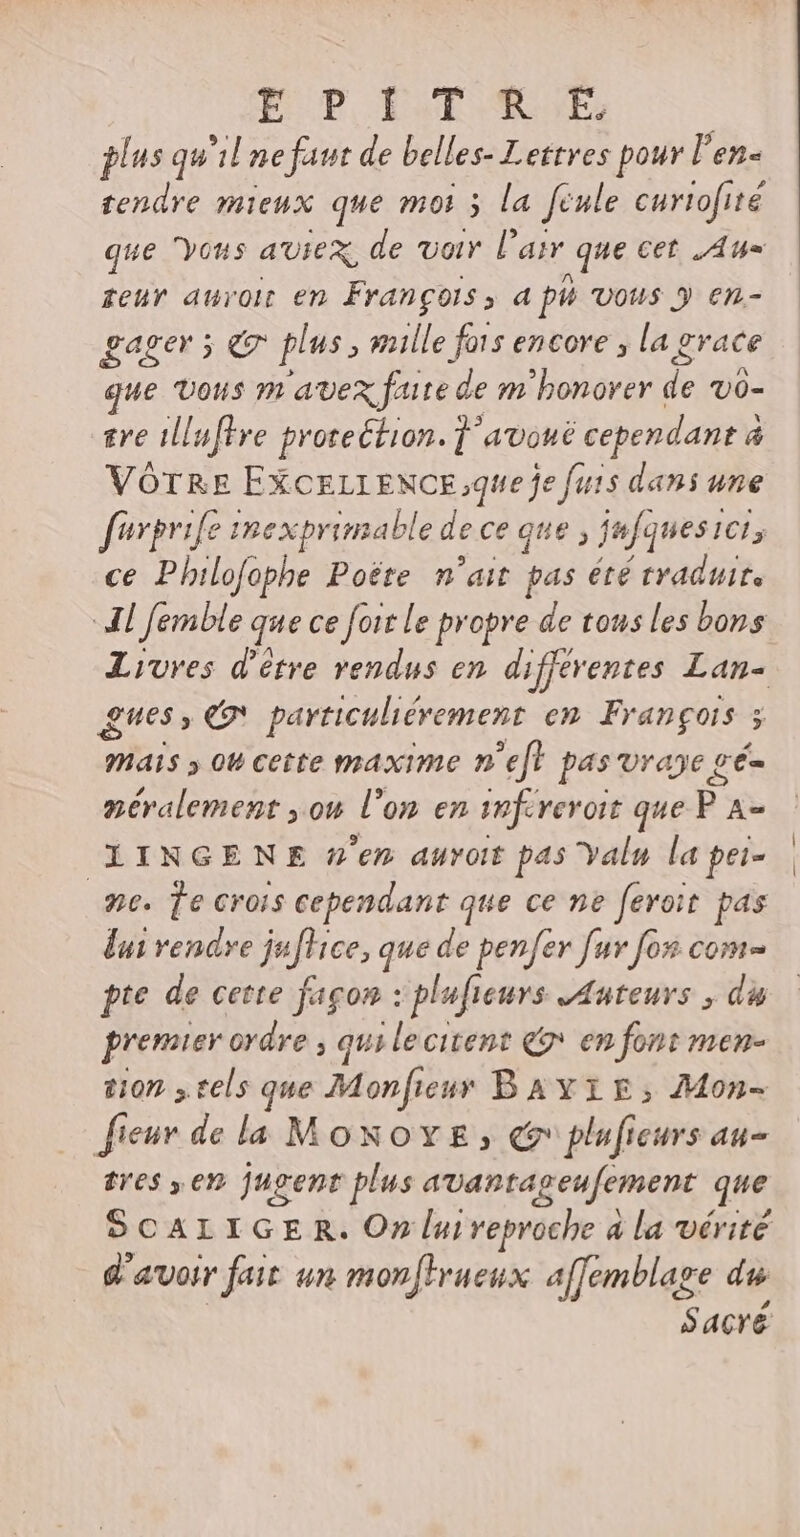 EPITRE.
plus qu'il ne faut de belles-Lettres pour l'en-
tendre mieux que moi ; la ſeule curioſité
que vous aviez de voir l'air que cet Au-
teur auroit en François, a pû vous y en-
gager ; & plus, mille fois encore, la grace
que vous m'avez faite de m'honorer de vô-
tre illuſtre protection. J'avouë cependant à
VÔTRE EXCELLENCE, que je ſuis dans une
ſurpriſe inexprimable de ce que, juſques ici,
ce Philoſophe Poëte n'ait pas été traduit.
Il ſemble que ce ſoit le propre de tous les bons
Livres d'être rendus en différentes Lan-
gues, & particuliérement en François ;
mais, ou cette maxime n'eſt pas vraye gé-
néralement, ou l'on en inféreroit que PA-
LINGENE n'en auroit pas valu la pei-
ne. Je crois cependant que ce ne ſeroit pas
lui rendre juſtice, que de penſer ſur ſon com-
pte de cette façon : pluſieurs Auteurs, du
premier ordre, qui le citent & en font men-
tion, tels que Monſieur BAYLE, Mon-
ſieur de la MONOYE, & pluſieurs au-
tres, en jugent plus avantageuſement que
SCALIGER. On lui reproche à la vérité
d'avoir fait un monſtrueux aſſemblage du
Sacré